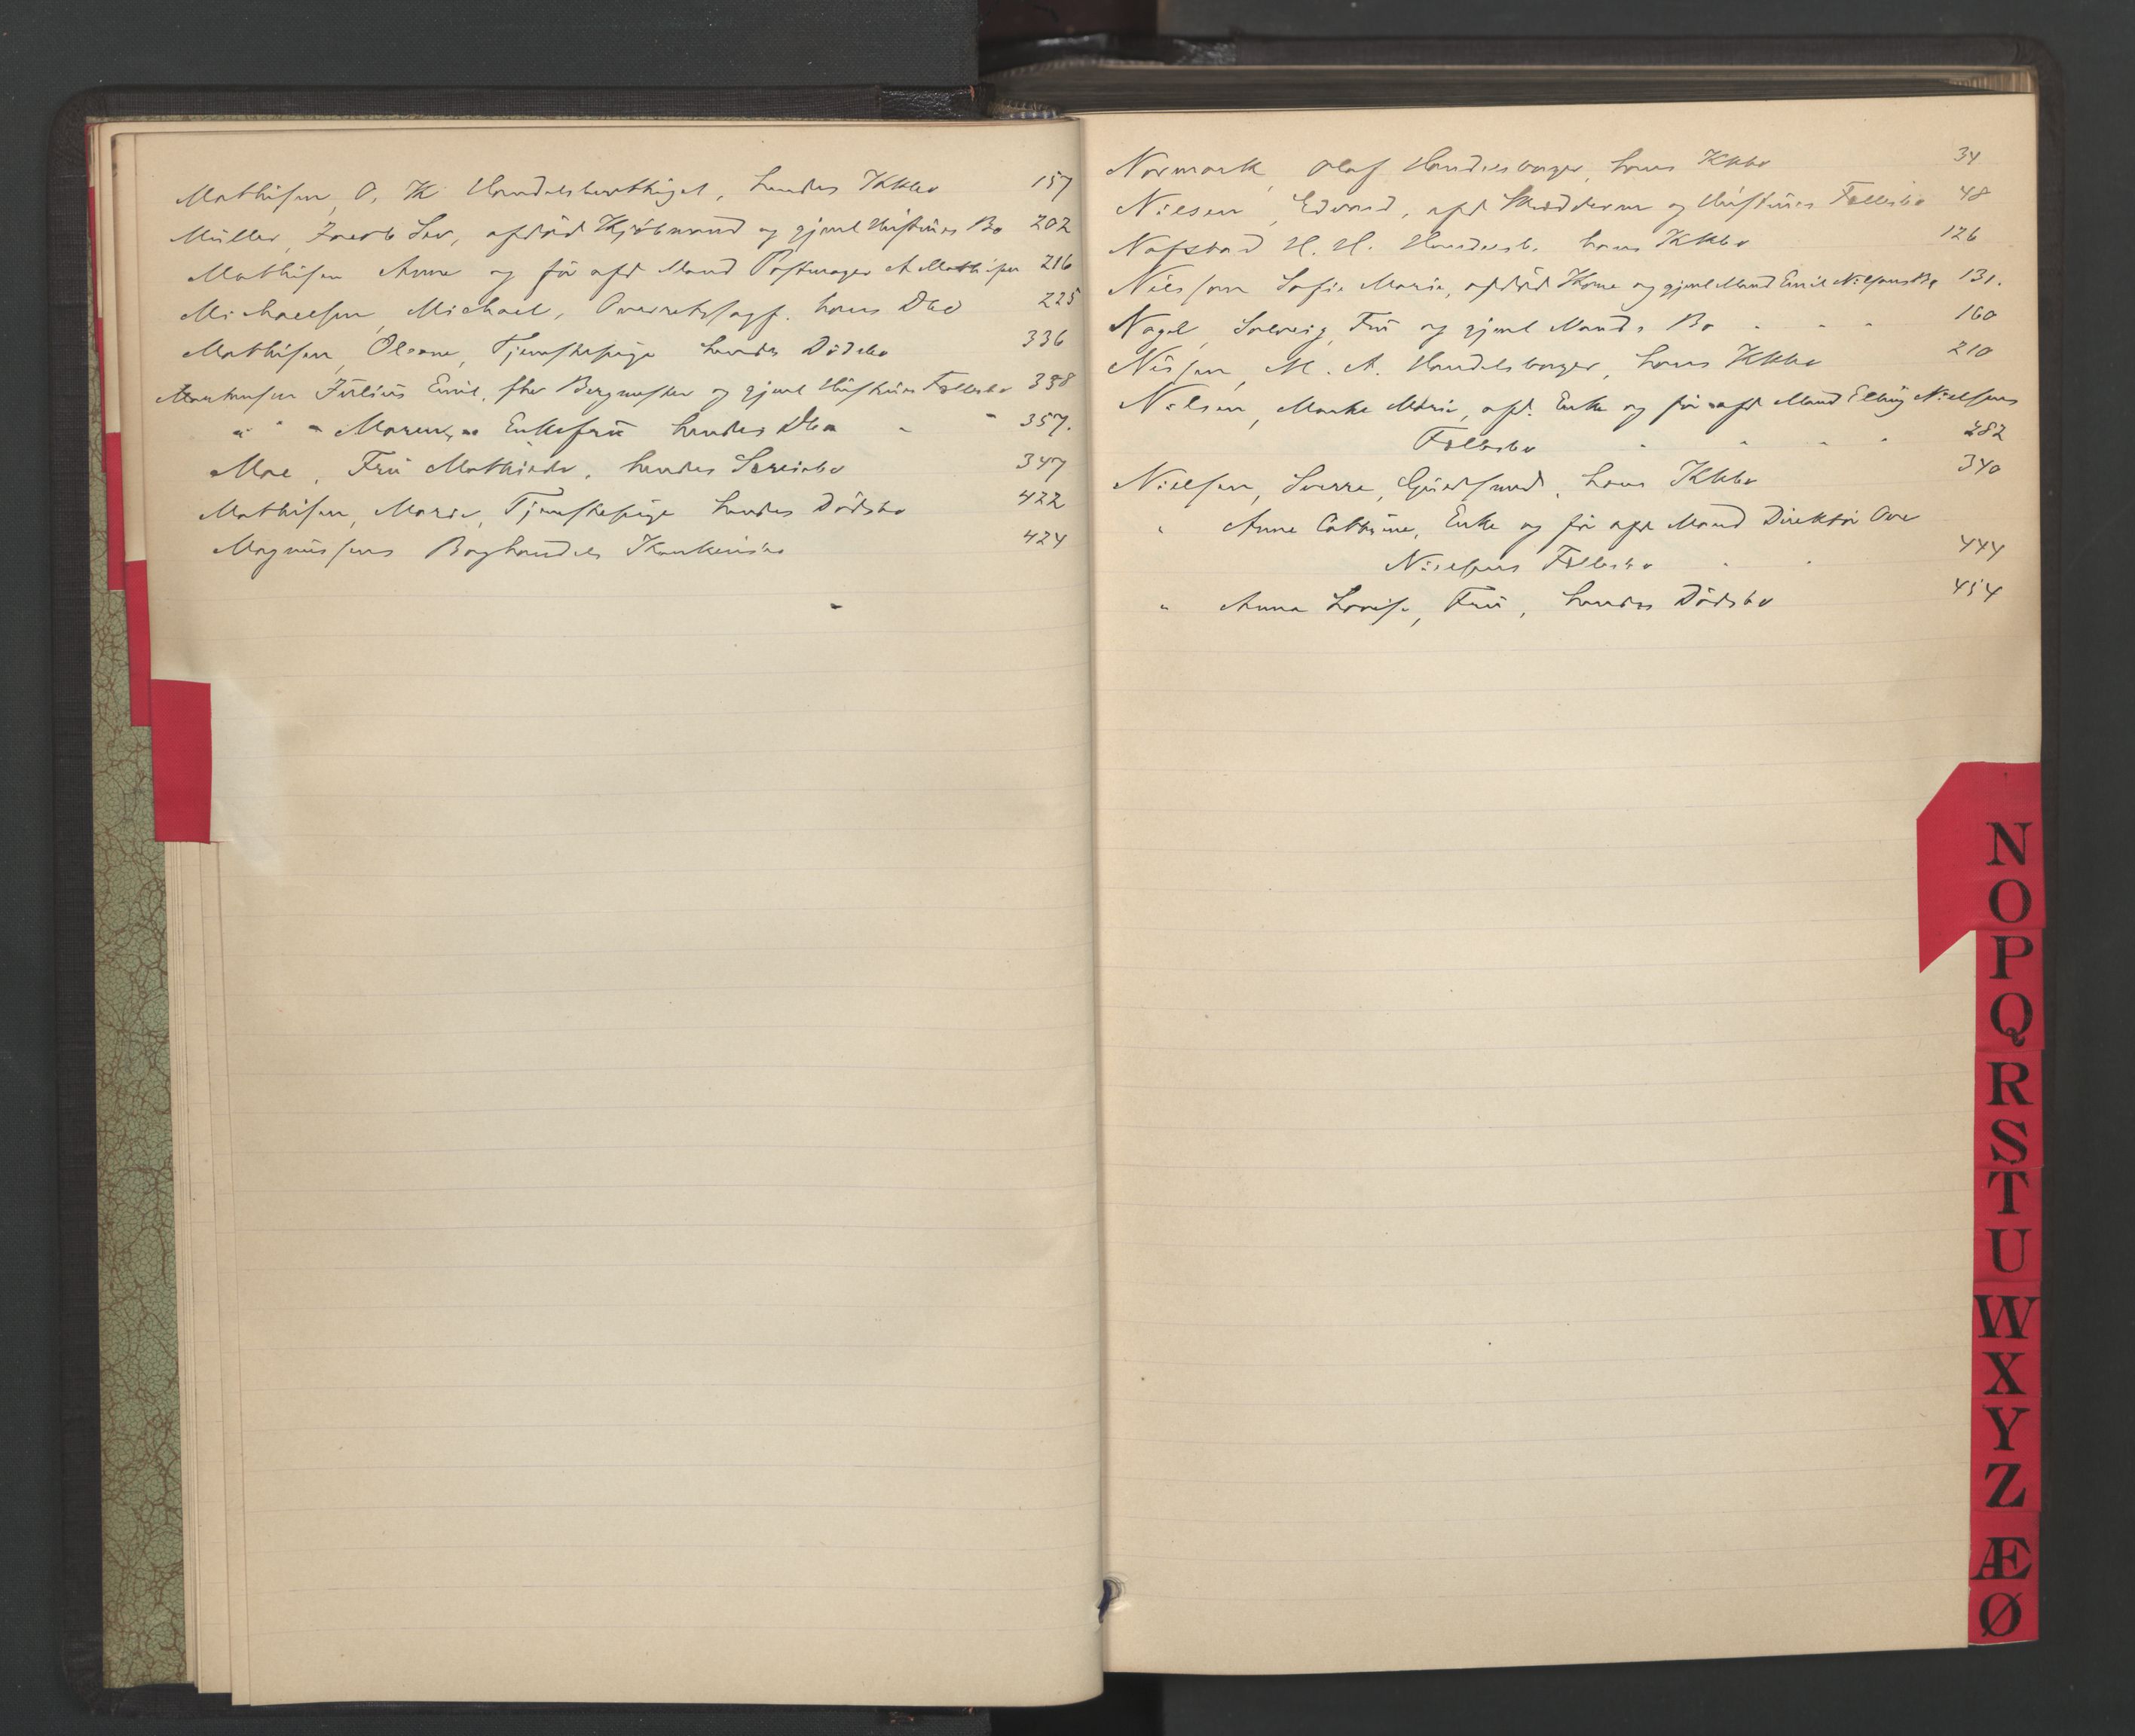 Mathisen, O. K Handelsberettiget, hendes Kkbo 157
Müller, Jacob Lev, afdød Kjøbmand og gjenl Hustrues Bo 202
Mathisen Anne og før afd Mand Postmager A Mathisen 216
Michaelsen, Michael, Overretssagf. hans Dbo 225
Mathisen, Oleane, Tjenestepige hendes Dødsbo 336
Julius Emil, fhv Bergmester og gjenl Hustrues Fællesbo 338
" " " Enkefru hendes Dbo " " 357.
Moe, Fru Mathilde, hendes 347
Mathisen, Marie, Tjenestepige hendes Dødsbo 422
Magnussens Boghandels Konkursbo 424
Normark, Olaf Handelsborger, hans Kkbo 34
Nilsen, Edvard, afd Skrædderm og Hustrues Fællesbo 48
Nafstad H. H. Handelsb. hans Kkbo 126
Nilsson Sofie Marie, afdød Kone og gjenl Mand Emil Nilssons Bo 131.
Nagel, Solveig, Fru og gjenl Mands Bo " " " 160
Nilsen, M. A. Handelsborger, hans Kkbo 210
Nilsen, Marthe Marie, afd. Enke og før afd Mand Elling Nielsens
Fællesbo " " " " 282
Nielsen, Sverre, Guldsmed, hans Kkbo 340
" Anne Cathrine, Enke og før afd Mand Direktør Ove
Nielsens Fællesbo " " 444
" Anna Lovise, Fru, hendes Dødsbo 454
N
O
P
Q
R
S
T
U
W
X
Y
Z
Æ
Ø